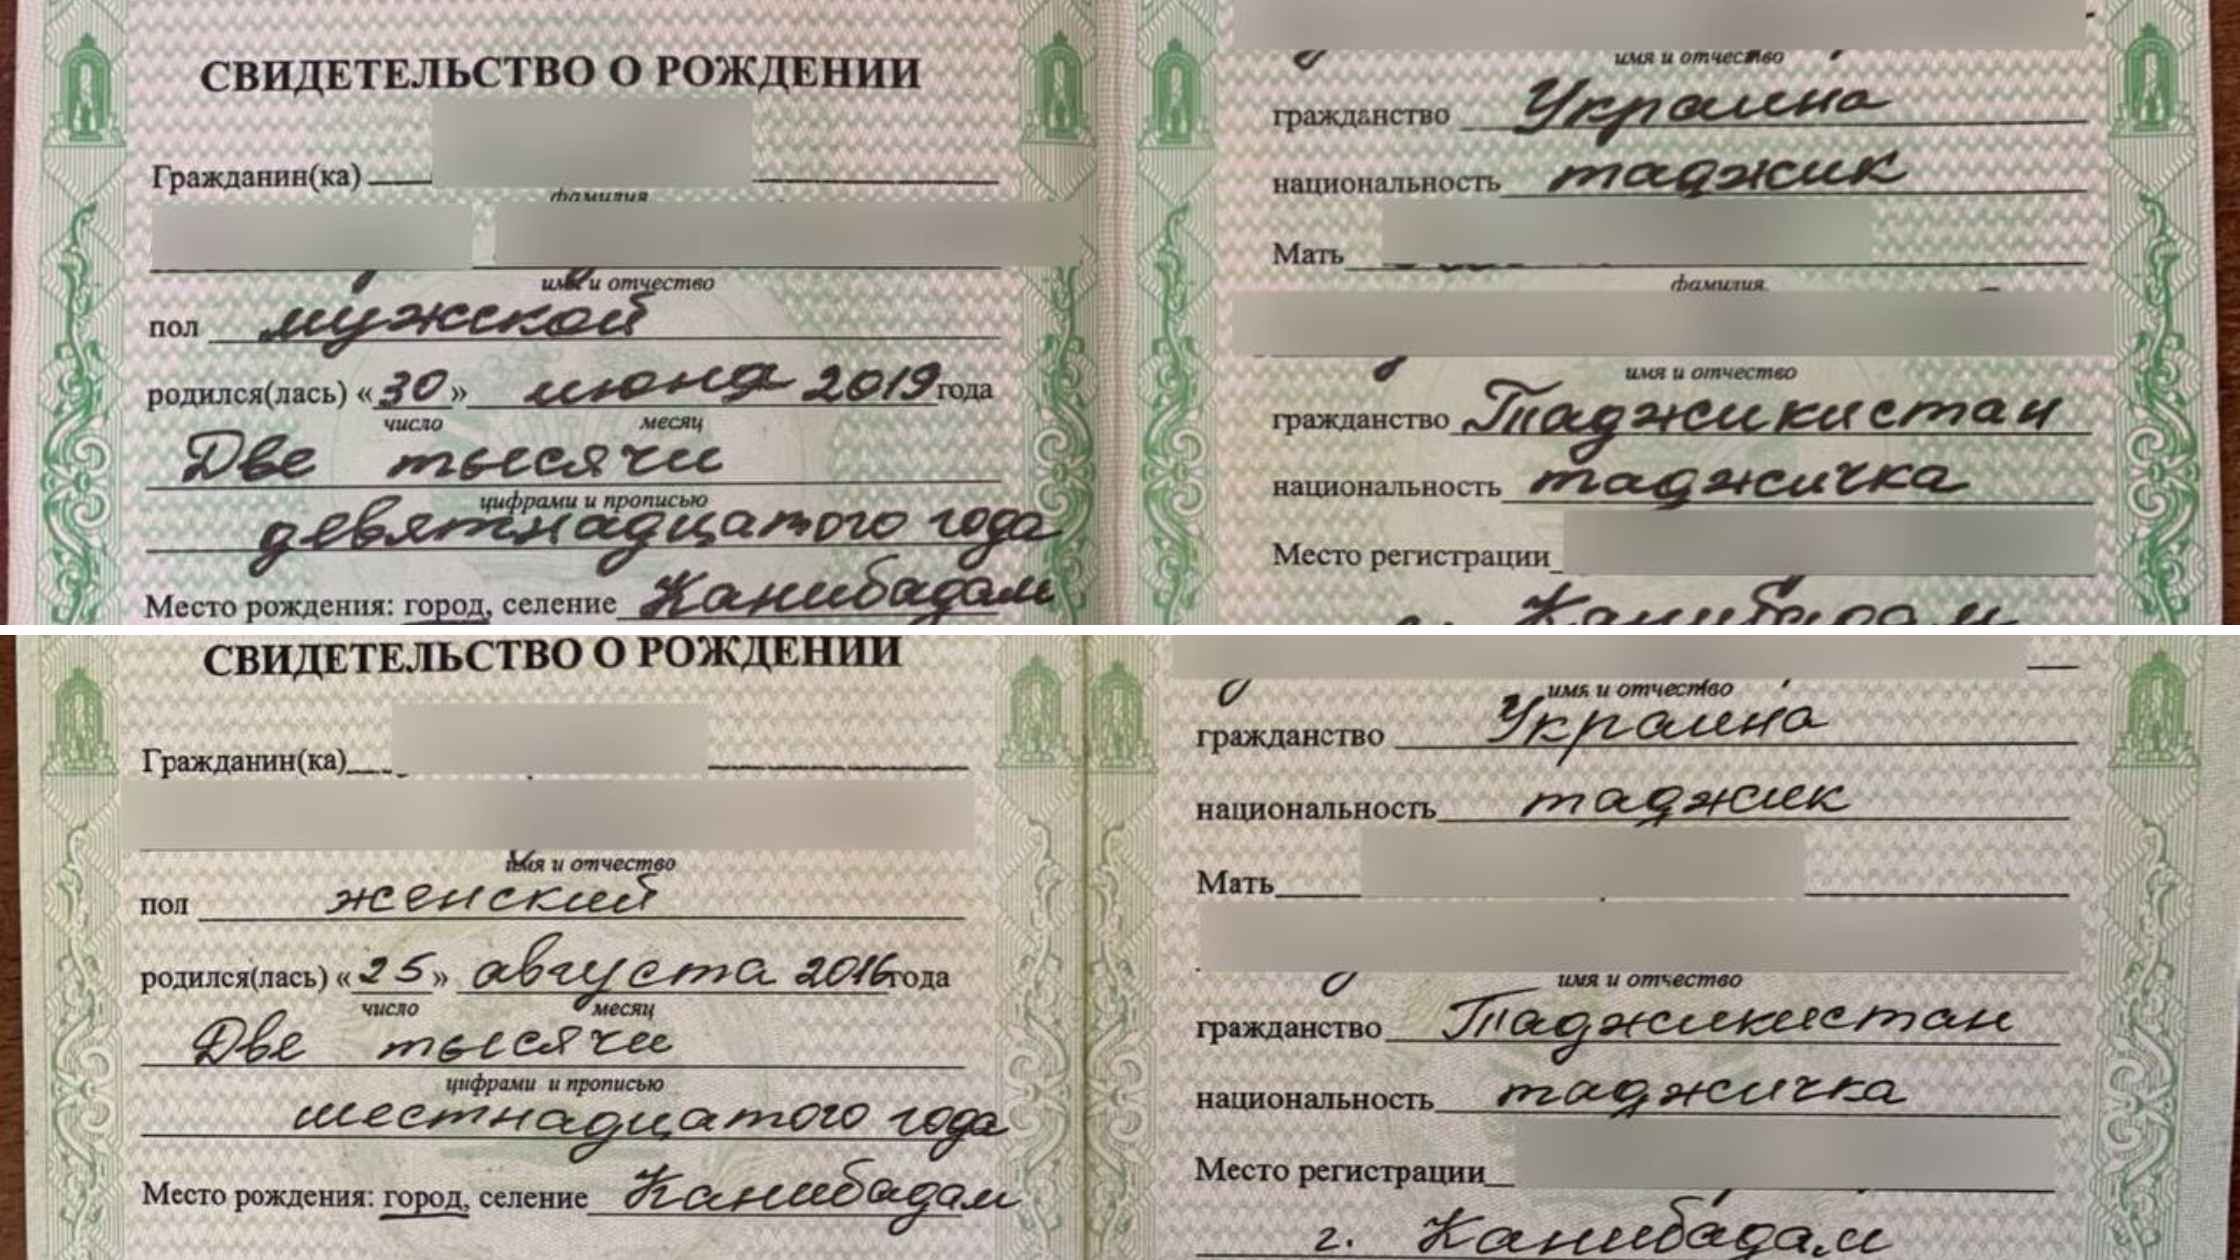 СВИДЕТЕЛЬСТВО О РОЖДЕНИИ
Гражданин(ка)
фамилия
имя и отчество
пол мужской
родился(лась) «30» июня 2019 года
число месяц
Две тысячи
цифрами и прописью
девятнадцатого года
Место рождения: город, селение Канибадам
имя и отчество
гражданство Украина
национальность таджик
Мать
фамилия
имя и отчество
гражданство Таджикистан
национальность таджичка
Место регистрации
г. Канибадам
СВИДЕТЕЛЬСТВО О РОЖДЕНИИ
Гражданин(ка)
имя и отчество
пол женский
родился(лась) «25» августа 2016 года
число месяц
Две тысячи
цифрами и прописью
шестнадцатого года
Место рождения: город, селение Канибадам
имя и отчество
гражданство Украина
национальность таджик
Мать
имя и отчество
гражданство Таджикистан
национальность таджичка
Место регистрации
г. Канибадам